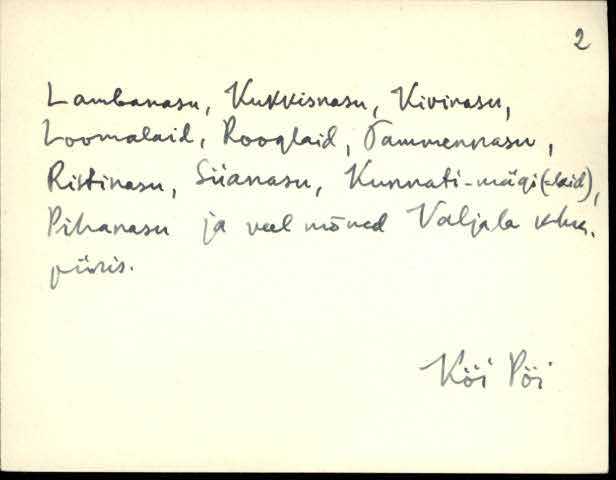 2
Lambanasu, Kukkisnasu, Kivinasu,
Loomalaid, Rooglaid, Tammennasu,
Ristinasu, Siianasu, Kunnati-mägi(-laid),
Pihanasu ja veel mõned Valjala khk.
piiris.
Köi Pöi